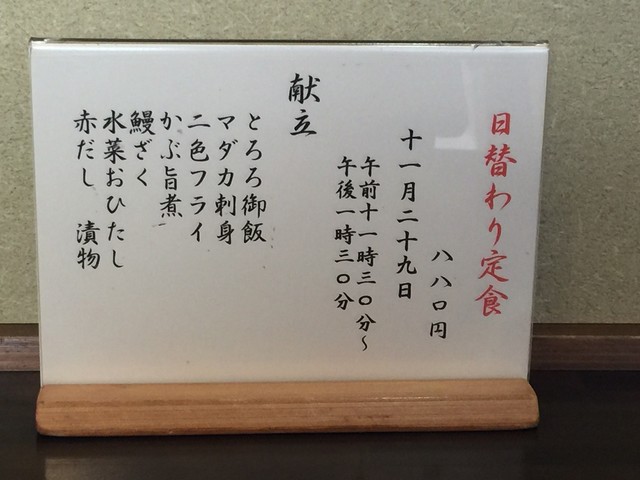 日替わり定食
八八〇円
十一月二十九日
午前十一時三〇分～
午後一時三〇分
献立
とろろ御飯
マダカ刺身
二色フライ
かぶ旨煮
鰻ざく
水菜おひたし
赤だし 漬物